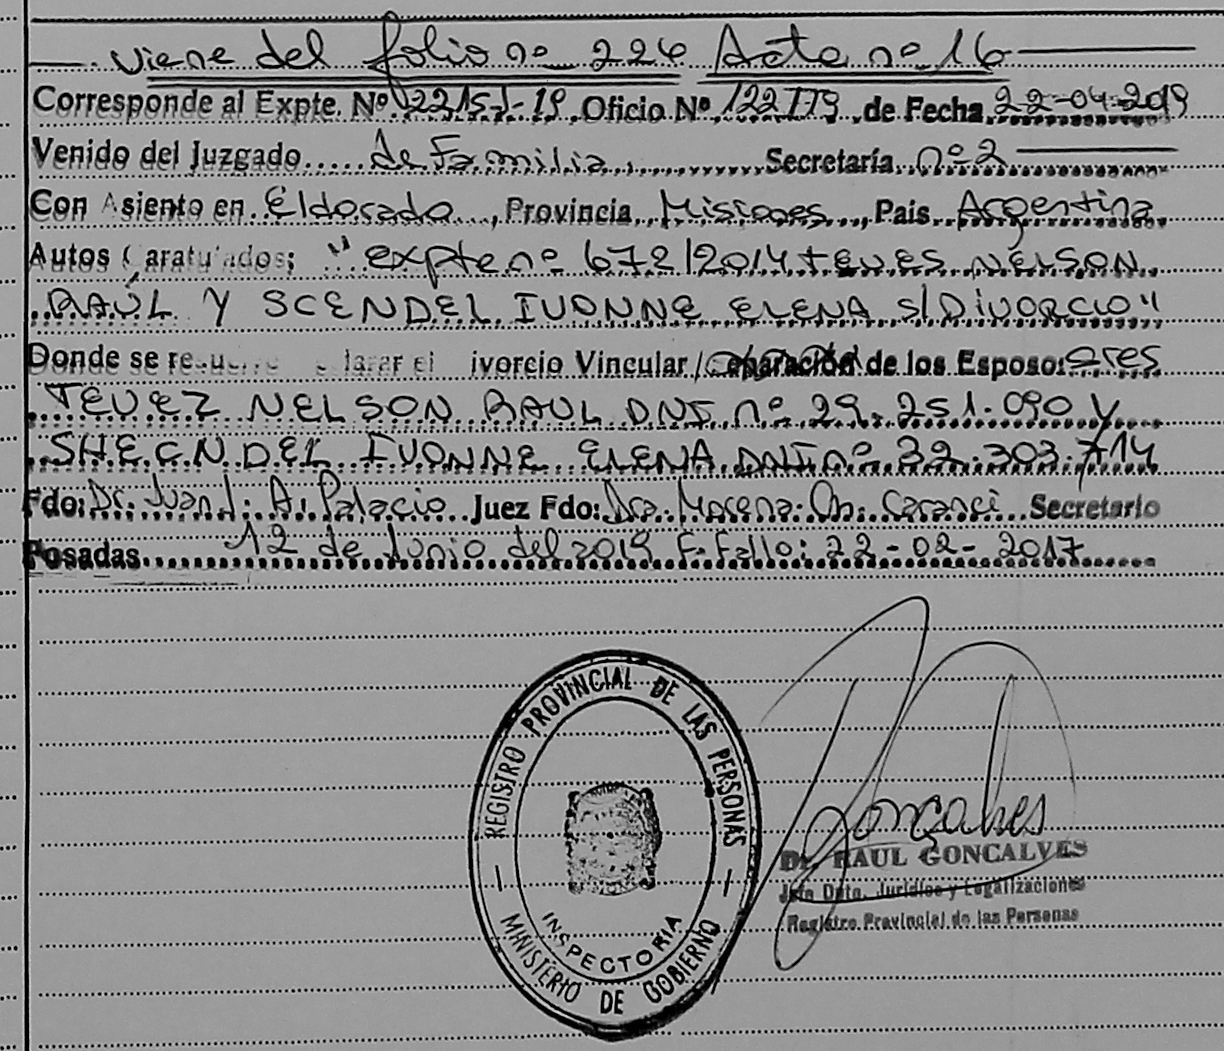 Viene del folio nº 226 Acta nº 16
Corresponde al Expte. Nº 2215-J-19 Oficio Nº 122779 de Fecha 22-04-2019
Venido del Juzgado de Familia Secretaría nº 2
Con Asiento en Eldorado, Provincia Misiones, Pais Argentina
Autos Caratulados; "expte nº 672/2014 TEVES NELSON
RAÚL Y SCENDEL IVONNE ELENA S/DIVORCIO"
Donde se el ivorcio Vincular/ eparación de los Esposo: ores
TEVEZ NELSON RAUL DNI nº 29.251.090 Y
SHECNDEL IVONNE ELENA DNI nº 32.303.714
Fdo: Dr. Juan J. A. Palacio Juez Fdo: Dra. Morena Caranci Secretario
Posadas 12 de Junio del 2019 F. Fallo: 22-02-2017
REGISTRO PROVINCIAL DE LAS PERSONAS
INSPECTORIA
MINISTERIO DE GOBIERNO
Gonçalves
Dr. RAUL GONCALVES
Jefe Dpto. Jurídico y Legalizaciones
Registro Provincial de las Personas